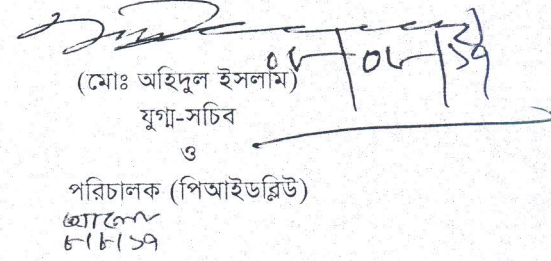 ০৮/০৮/১৭
(মোঃ অহিদুল ইসলাম)
যুগ্ম-সচিব
ও
পরিচালক (পিআইডব্লিউ)
৮/৮/১৭